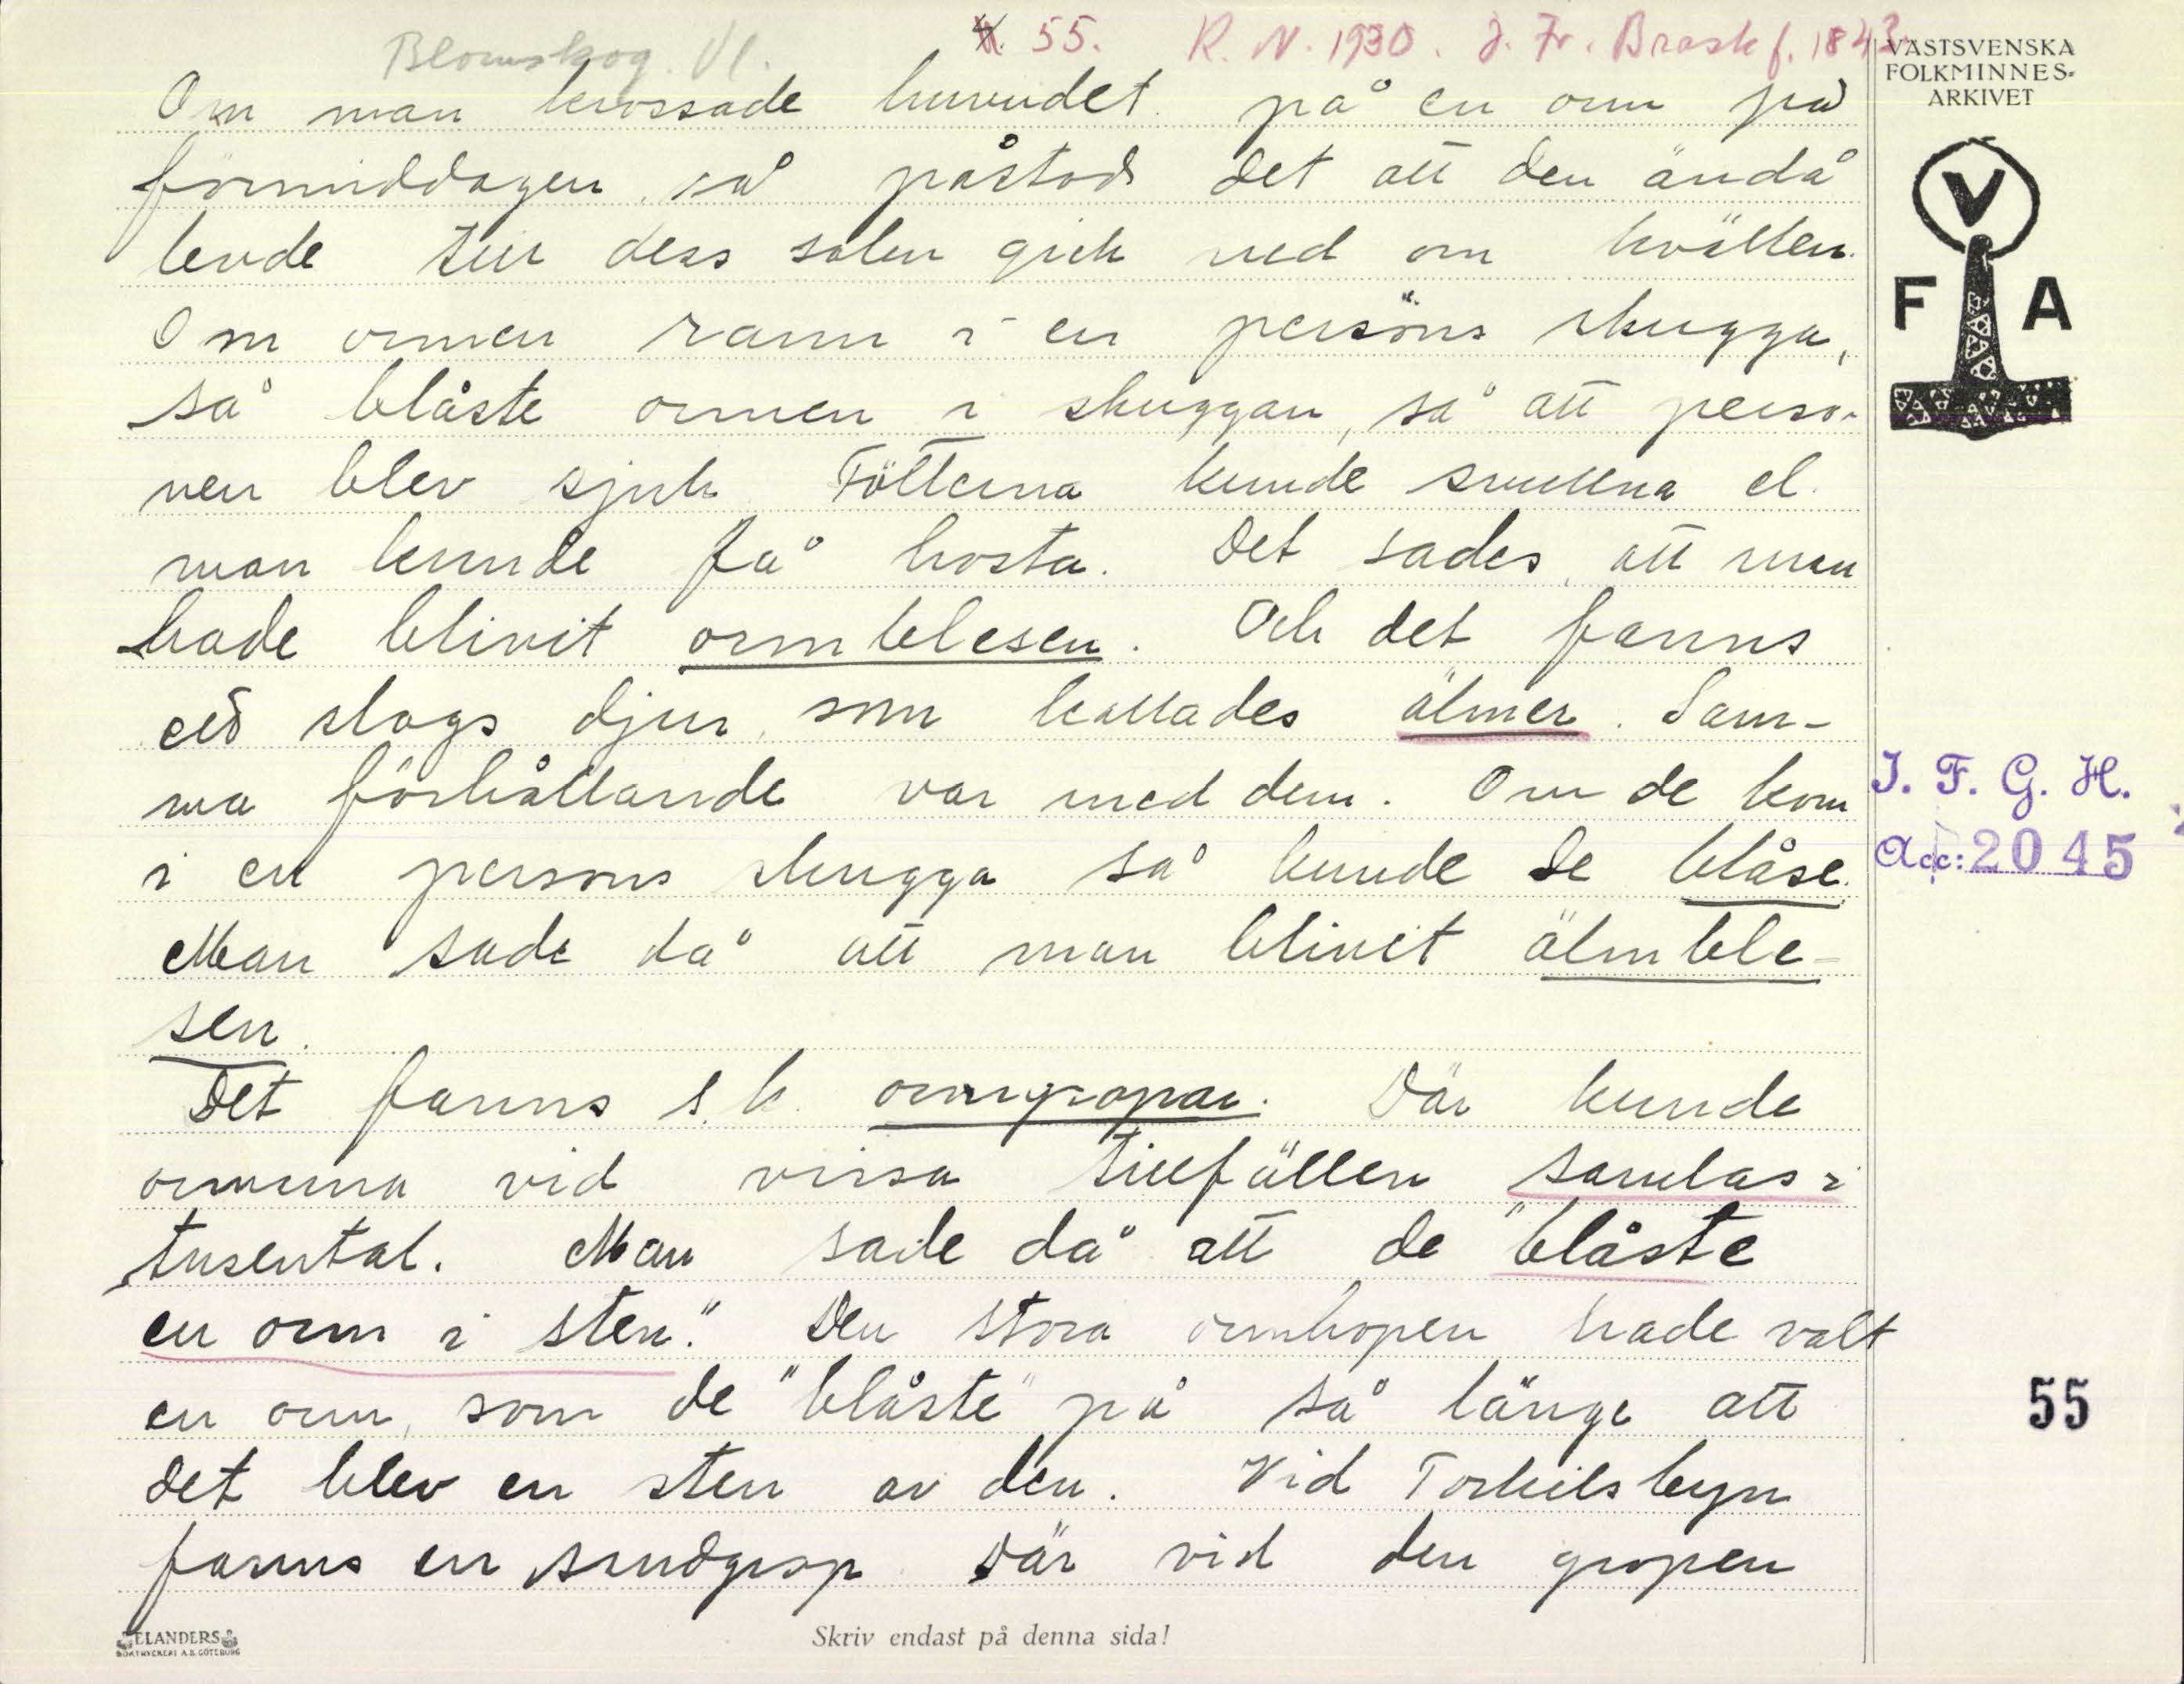 Blomskog. Vl.
55. R. N. 1930. J. Fr. Brask f. 1843.
VÄSTSVENSKA
FOLKMINNES-
ARKIVET
V
F A
Om man krossade huvudet på en orm på
förmiddagen, så påstods det att den ändå
levde till dess solen gick ned om kvällen.
Om ormen rann i en persons skugga,
så blåste ormen i skuggan, så att perso-
nen blev sjuk. Fötterna kunde svullna el.
man kunde få hosta. Det sades, att man
hade blivit ormblesen. Och det fanns
ett slags djur som kallades älmer. Sam-
ma förhållande var med dem. Om de kom
i en persons skugga så kunde de blåse.
Man sade då att man blivit älmble-
sen.
Det fanns s.k. ormgropar. Där kunde
ormarna vid vissa tillfällen samlas i
tusental. Man sade då att de "blåste
en orm i sten." Den stora ormhopen hade valt
en orm, som de "blåste" på så länge att
det blev en sten av den. Vid Torkilsbyn
fanns en sandgrop. Där vid den gropen
J. F. G. H.
Acc: 2045
55
ELANDERS
BOKTRYCKERI A.B. GÖTEBORG
Skriv endast på denna sida!